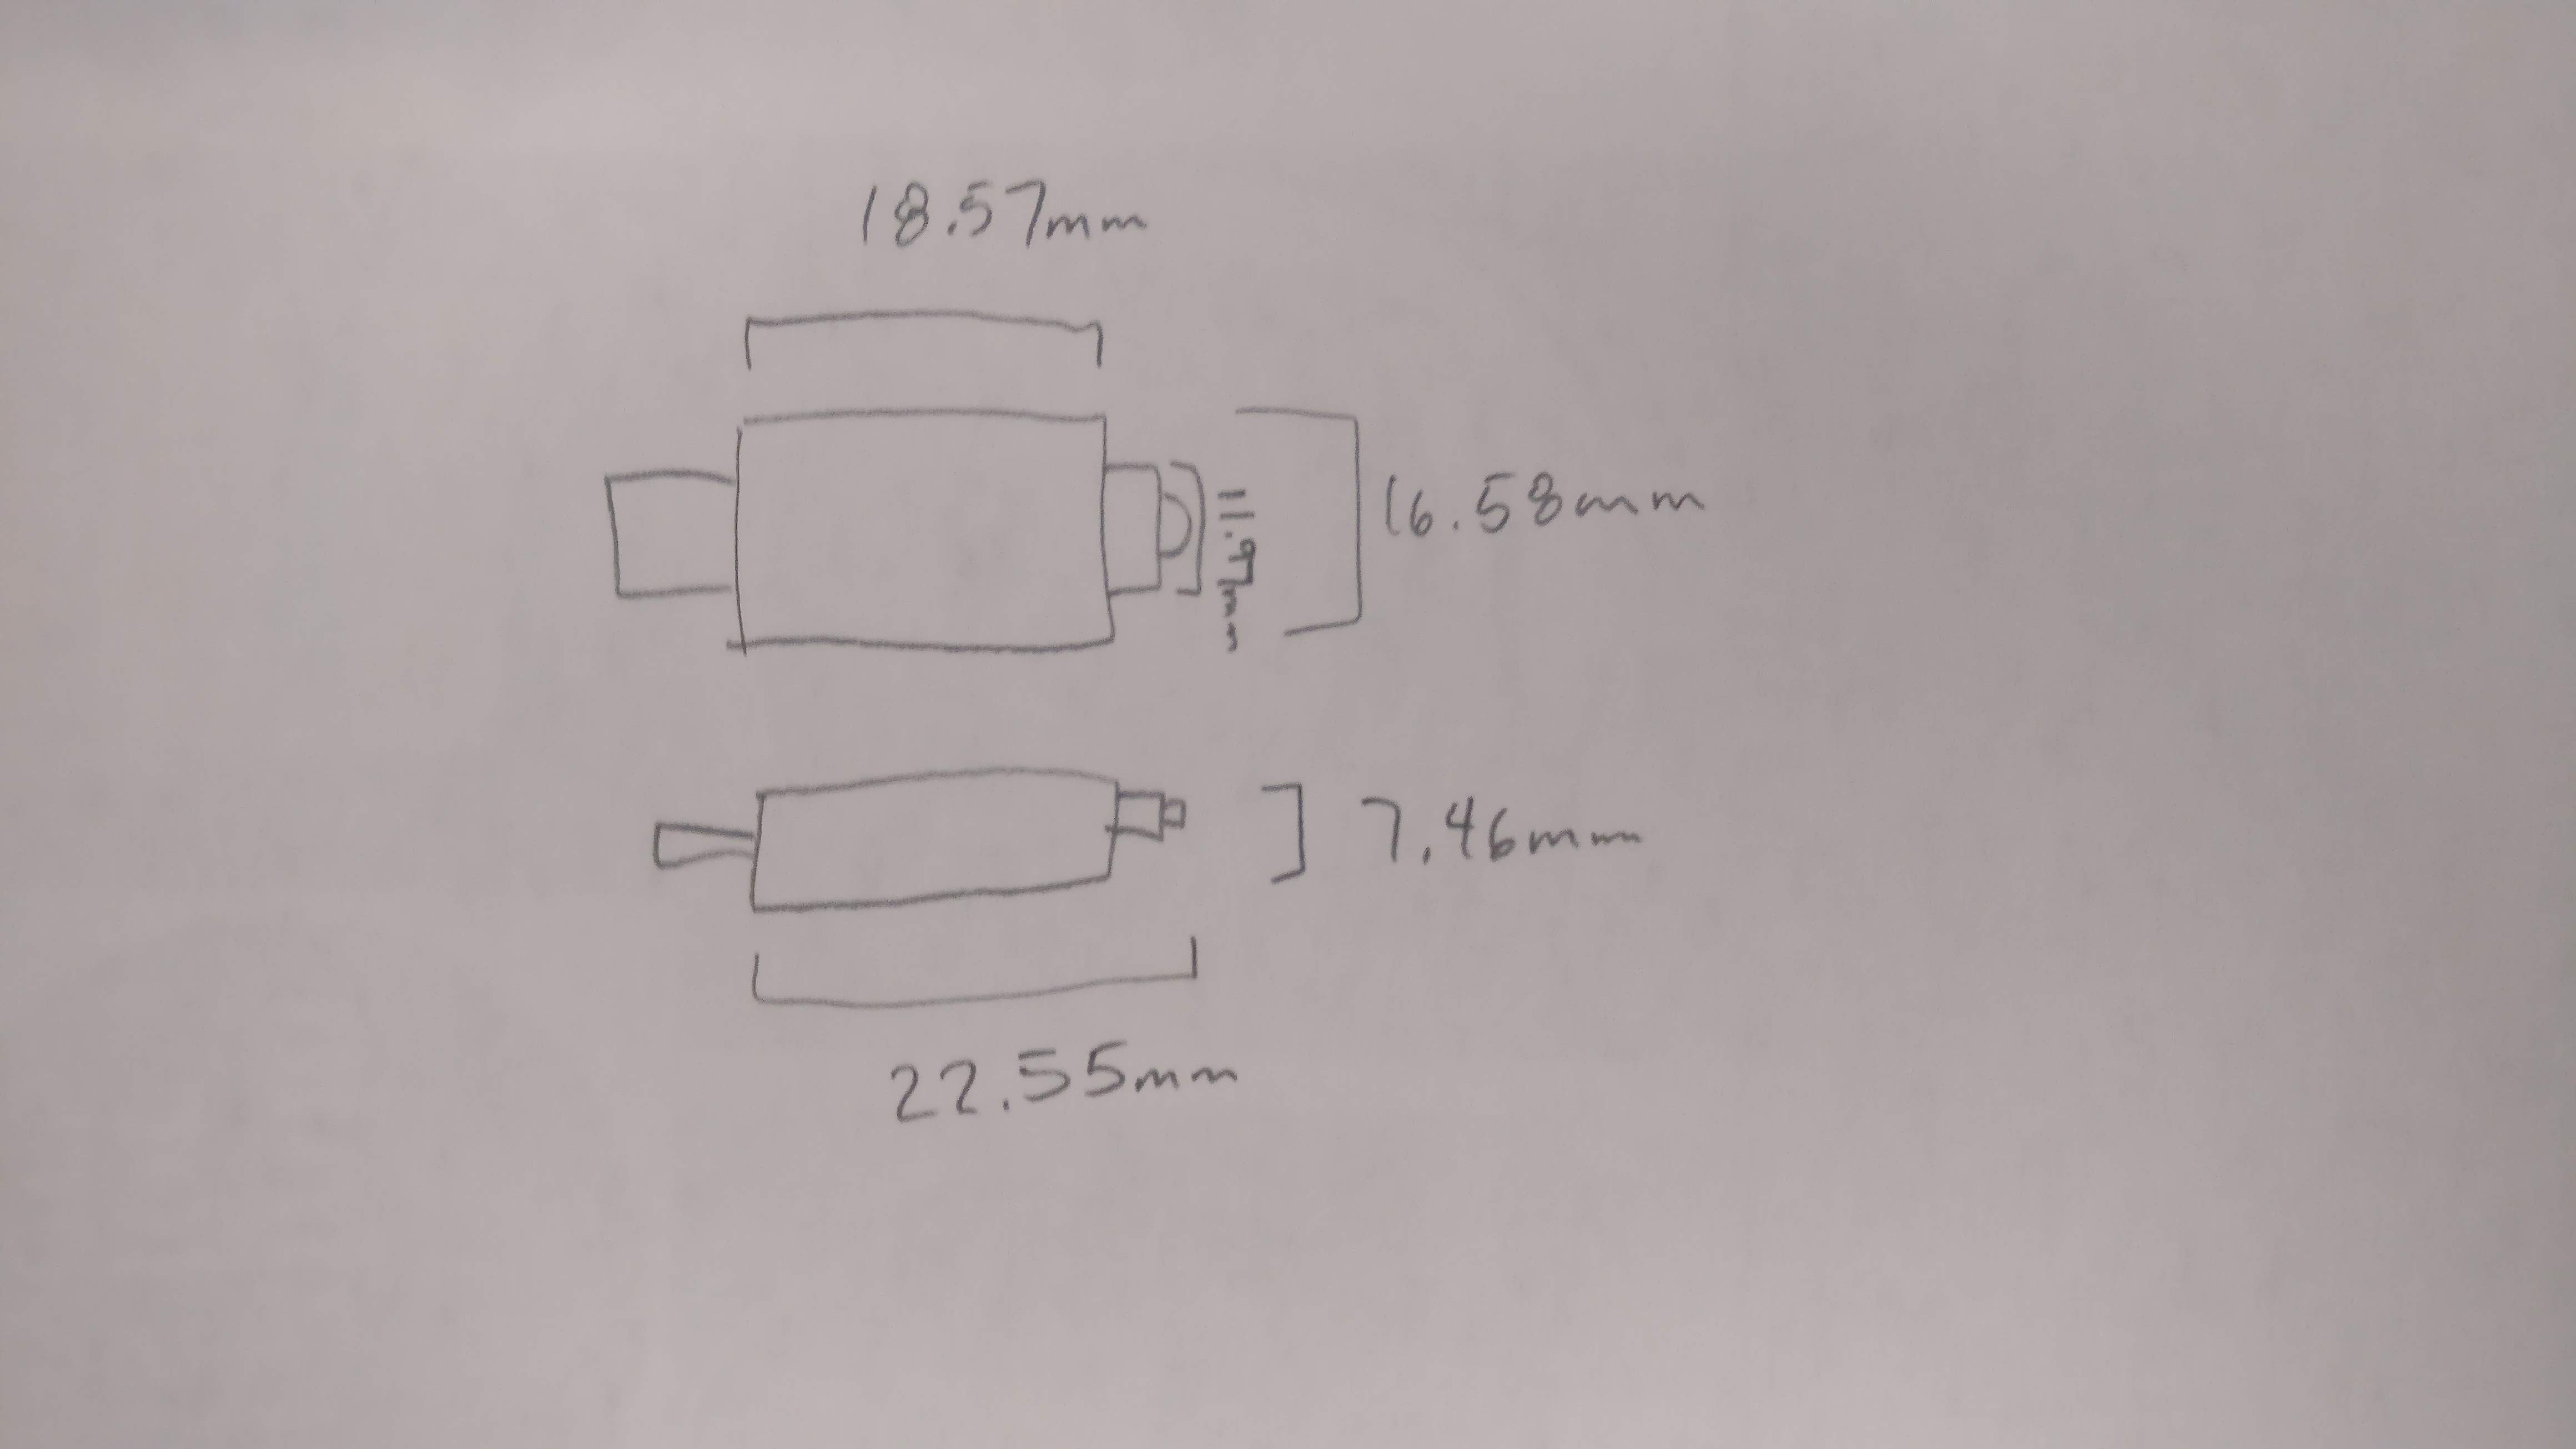 18.57mm
11.97mm
16.58mm
7.46mm
22.55mm